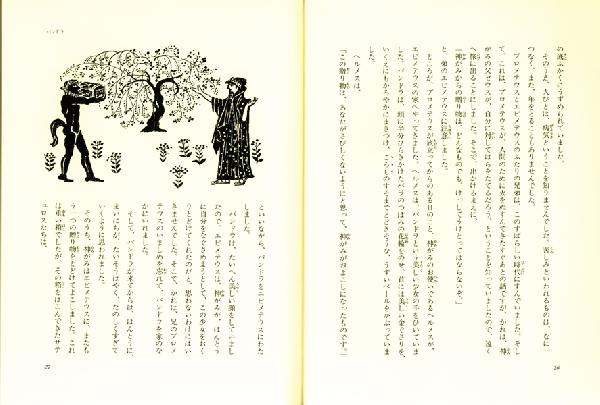 の底ふかくにうずめられていました。
そのうえ、人びとは、病気ということを知りませんでした。苦しみといわれるものは、なに一
つなく、また、年をとることもありませんでした。
プロメテウスとエピメテウスのふたりの兄弟は、このすばらしい時代にすんでいました。そし
て、これは、プロメテウスが、人間のために火をぬすんできたすぐあとの話ですが、かれは、神
がみの父ゼウスが、自分に対してはらをたてるだろう、ということを知っていましたので、遠く
へ旅に出ることにしました。そこで、出かけるまえに、
「神がみからの贈り物は、どんなものでも、けっしてうけとってはならないぞ。」
と、弟のエピメテウスに注意しました。
ところが、プロメテウスが旅立ってからのある日のこと、神がみのお使いであるヘルメスが、
エピメテウスの家へやってきました。ヘルメスは、パンドラという美しい少女の手をひいていま
した。パンドラは、頭に半分ひらきかけたバラのつぼみの花輪をのせ、首には美しい金ぐさりを、
いくえにもかろやかにまきつけ、ころものすそまでとどきそうな、うすいベールをかぶっていま
した。
ヘルメスは、
「この贈り物は、あなたがさびしくないようにと思って、神がみがおよこしになったものです。」
26
パンドラ
といいながら、パンドラをエピメテウスにわた
しました。
パンドラは、たいへん美しい顔をしていまし
たので、エピメテウスは、神がみが、ほんとう
に自分をなぐさめようとして、この少女をおく
りとどけてくれたのだと、思わないわけにはい
きませんでした。そこで、かれは、兄のプロメ
テウスのいましめを忘れて、パンドラを家のな
かにいれました。
そして、パンドラが来てからは、ほんとうに、
まいにちが、たいそうはやく、たのしくすぎて
いくように思われました。
そのうち、神がみはエピメテウスに、またも
う一つの贈り物をとどけてよこしました。これ
は重い箱でしたが、その箱をはこんできたサテ
ュロスたちは、
27